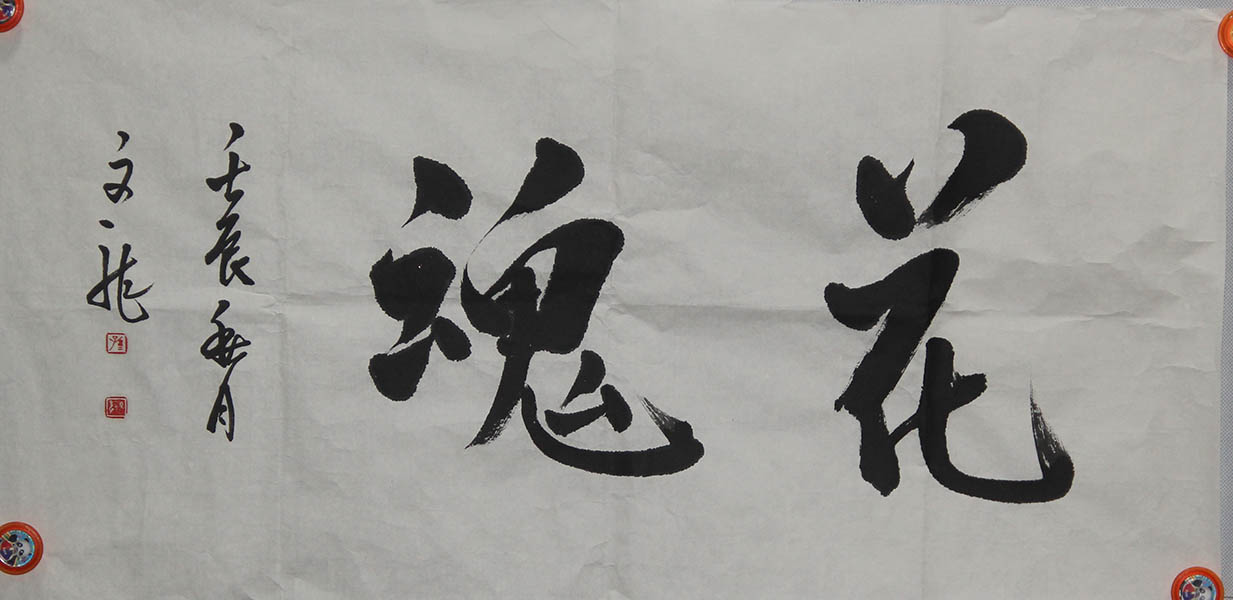 花魂
壬辰秋月
文龙